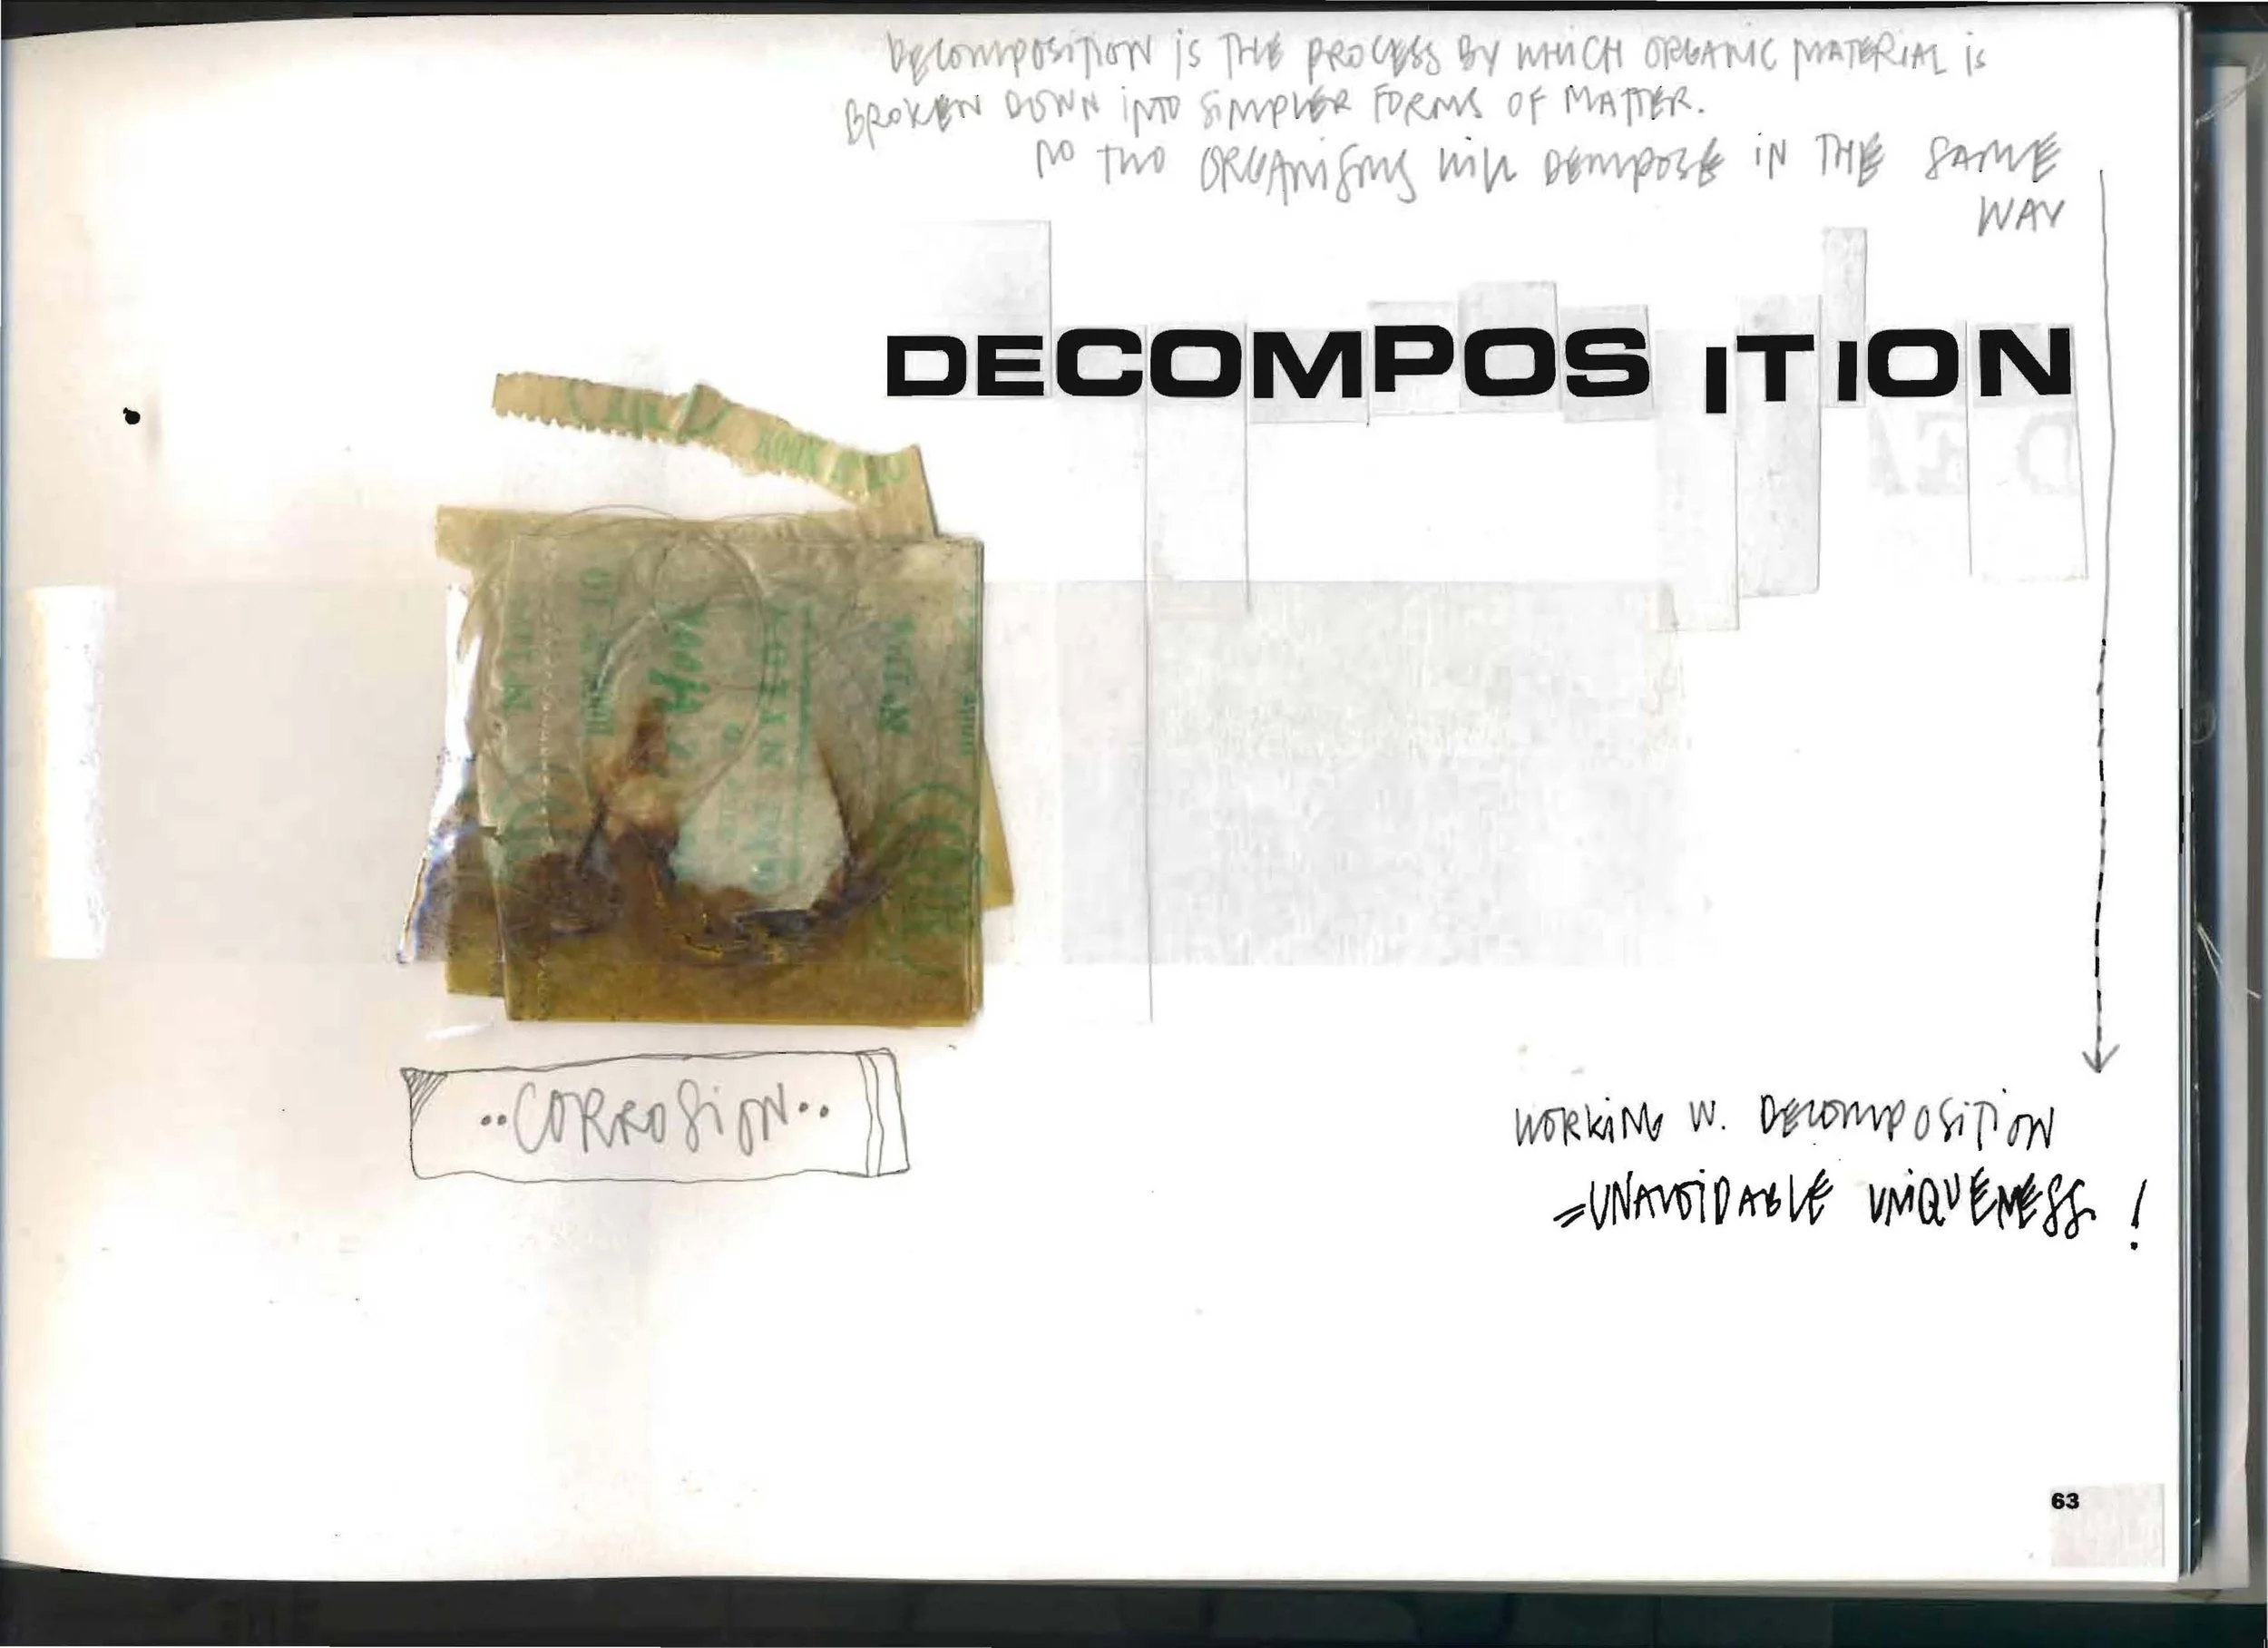 DECOMPOSITION IS THE PROCESS BY WHICH ORGANIC MATERIAL IS
BROKEN DOWN INTO SIMPLER FORMS OF MATTER.
NO TWO ORGANISMS WILL DEMPOSE IN THE SAME
WAY
DECOMPOSITION
..CORROSION..
WORKING W. DECOMPOSITION
=UNAVOIDABLE UNIQUENESS !
63